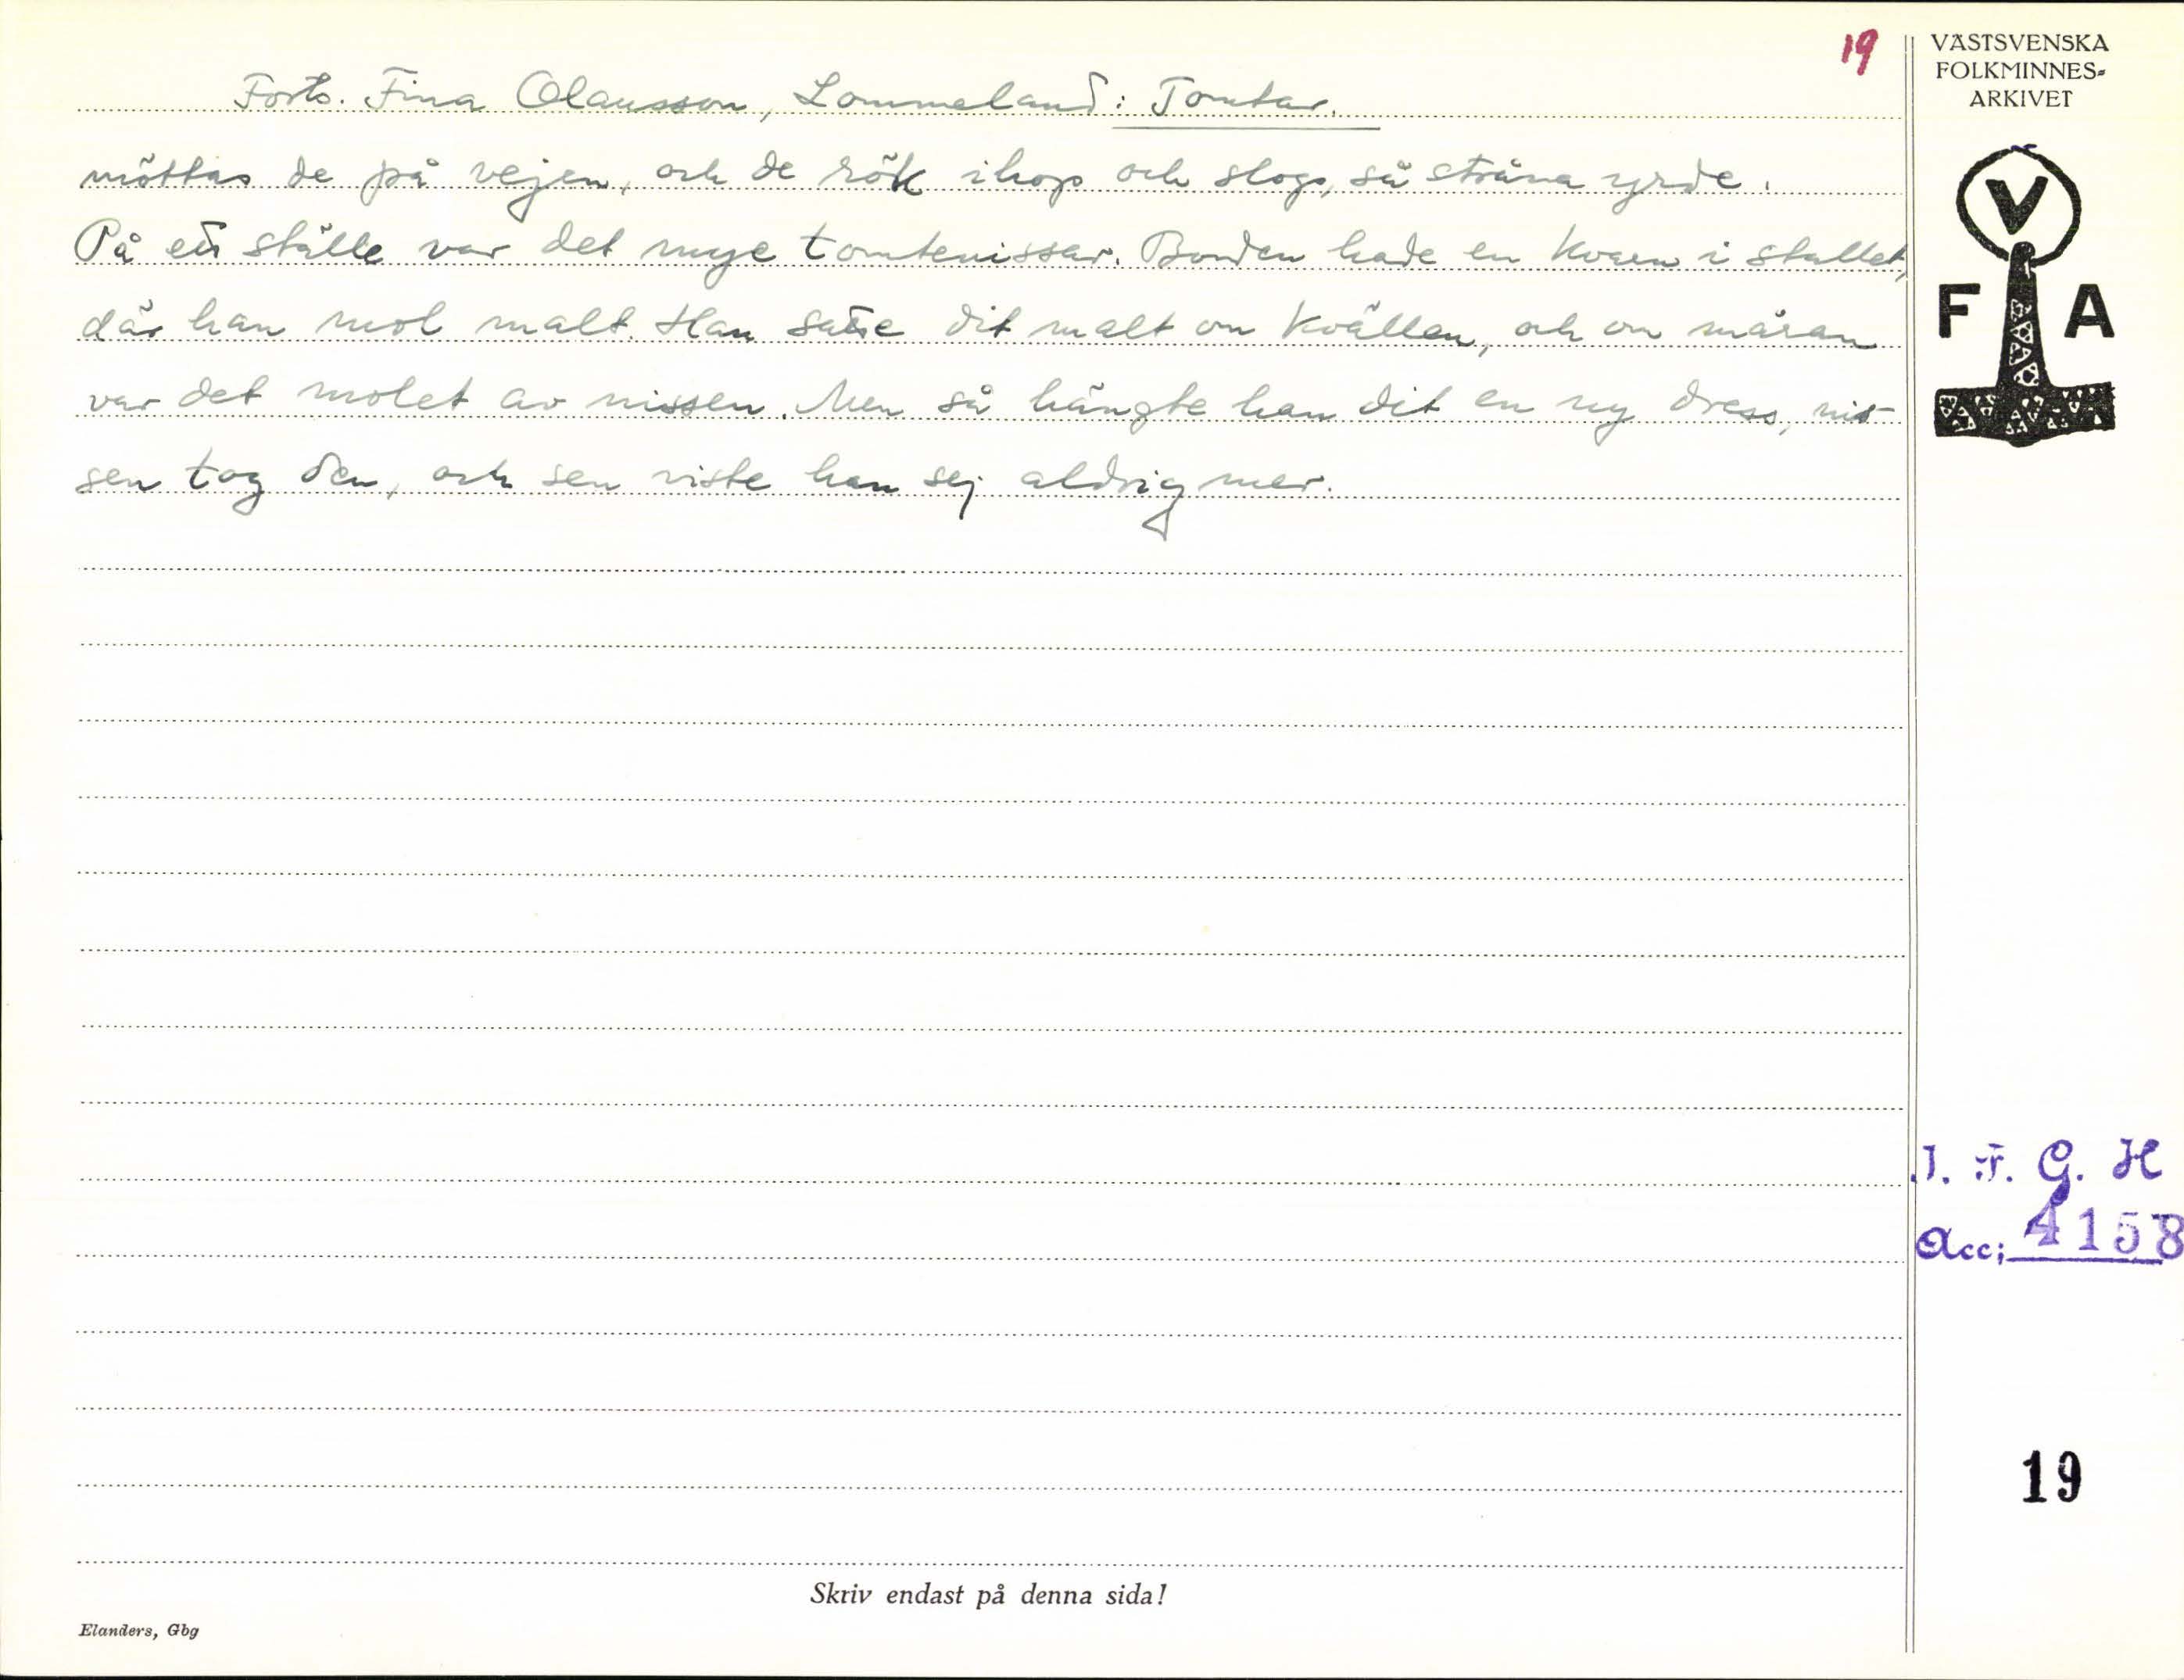 19
Forts. Fina Olausson, Lommeland: Tomtar.
möttas de på vejen, och de rök ihop och slogs, så stråna yrde.
På ett ställe var det mye tomtenissar. Bonden hade en kvarn i stallet,
där han mol malt. Han satte dit malt om kvällen, och om måran
var det molet av nissen. Men så hängte han dit en ny dress, nis-
sen tog den, och sen viste han sej aldrig mer.
VÄSTSVENSKA
FOLKMINNES-
ARKIVET
V
F A
I. F. G. H
Acc; 4158
19
Skriv endast på denna sida!
Elanders, Gbg